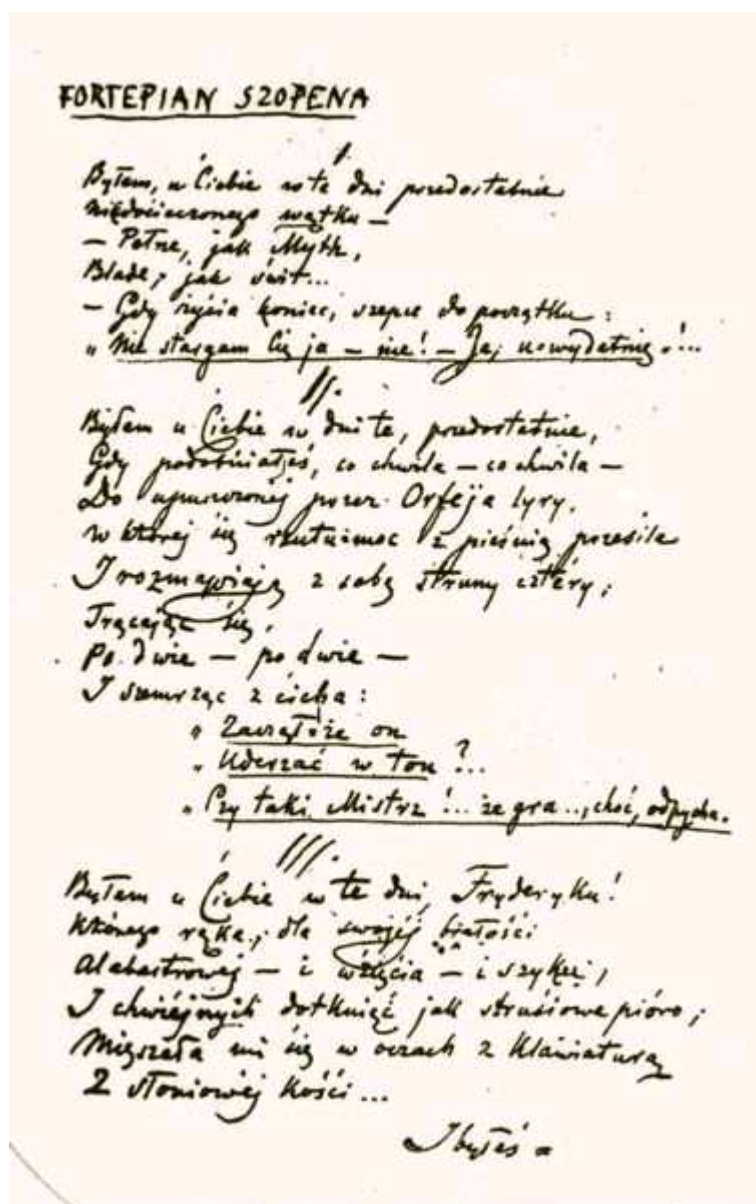 FORTEPIAN SZOPENA
I.
Byłem u Ciebie w te dni przedostatnie
Niedocieczonego wątku –
– Pełne, jak Myth,
Blade, jak świt...
– Gdy życia koniec, szepce do początku:
„Nie stargam Cię ja – nie! – Ja, uwydatnię!...
II.
Byłem u Ciebie w dni te, przedostatnie,
Gdy podobniałeś, co chwila – co chwila –
Do upuszczonej przez Orfeja lyry,
W której się rzutu-moc z pieśnią przesila
I rozmawiają z sobą struny cztéry,
Trącając się,
Po dwie – po dwie –
I szemrząc z cicha:
„Zacząłże on
„Uderzać w ton?...
„Czy taki Mistrz!... że gra..., choć, odpycha.
III.
Byłem u Ciebie w te dni, Fryderyku!
Którego ręka, dla swojéj białości
Alabastrowéj – i wzięcia – i szyku,
I chwiéjnych dotknięć jak strusiowe pióro,
Mięszała mi się w oczach z klawiaturą
Z słoniowéj kości...
I byłeś =